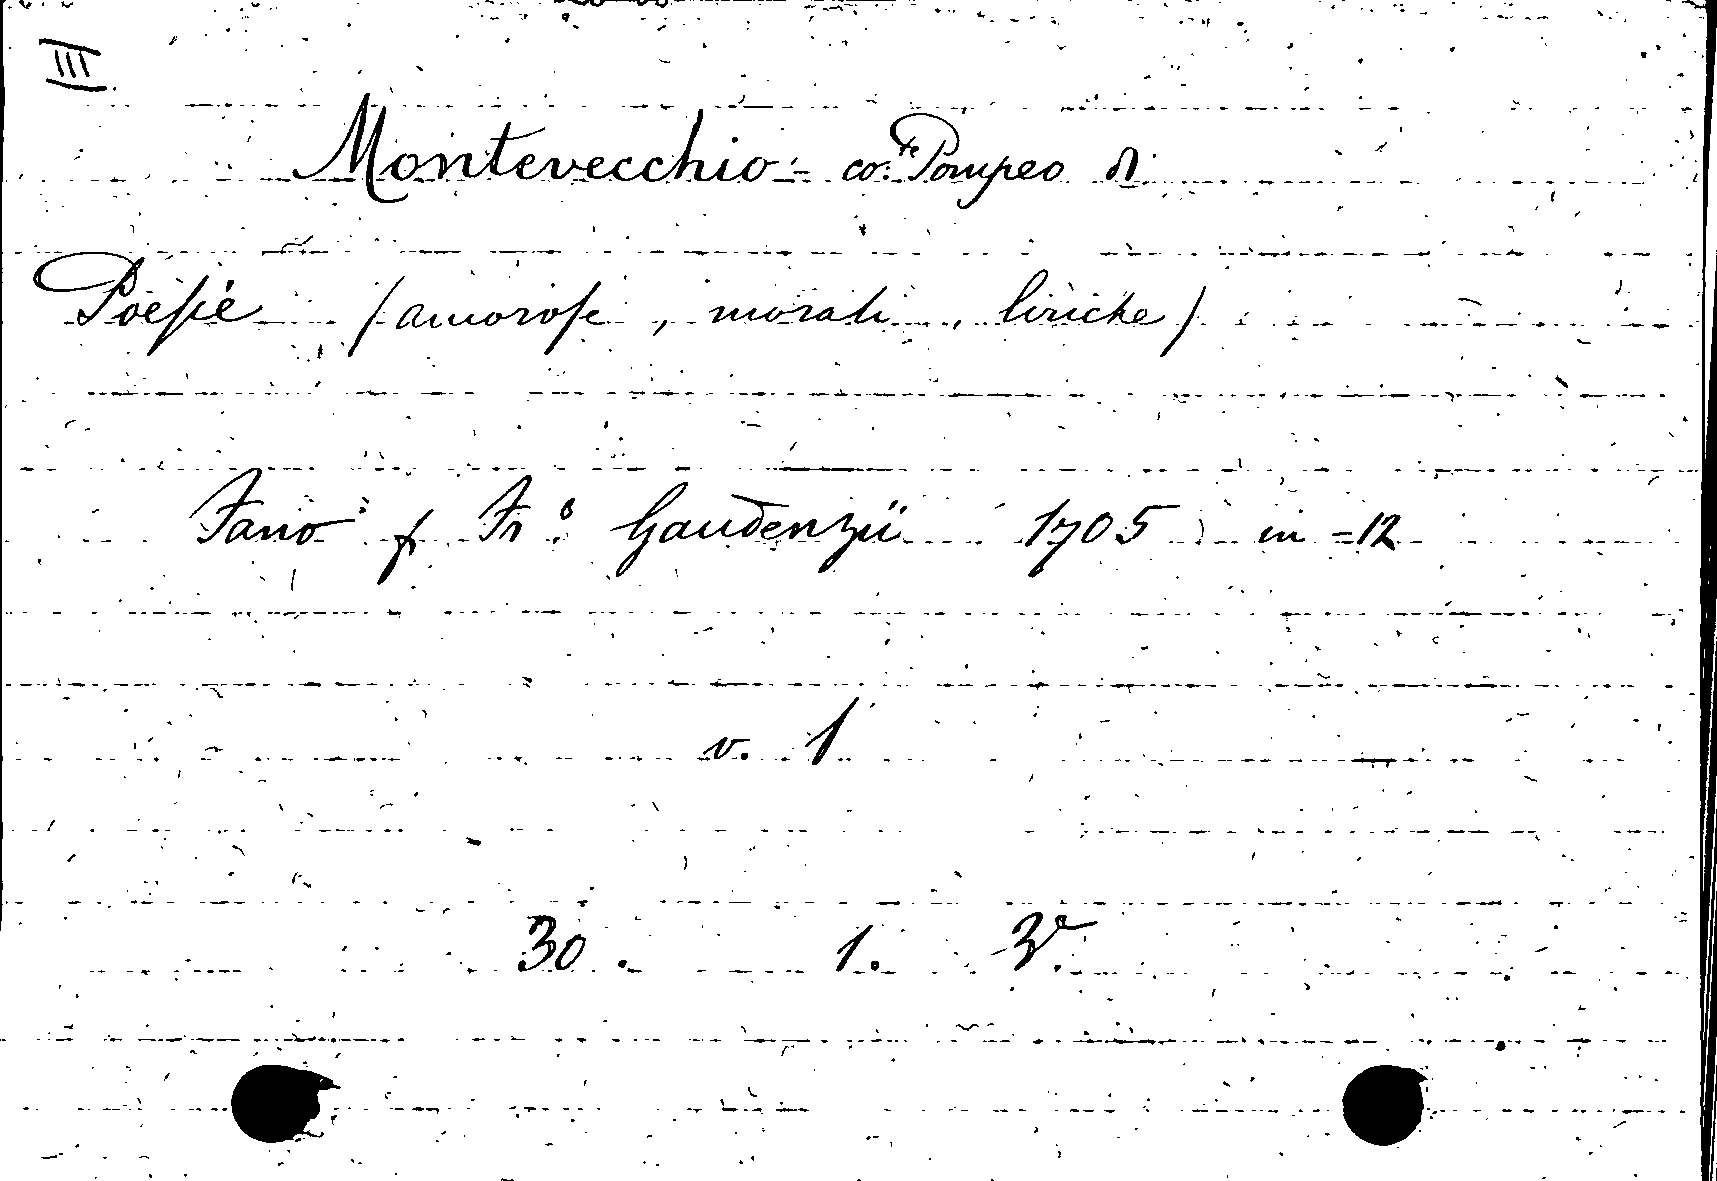 III
Montevecchio - co:te Pompeo di
Poesie (amorose, morali, liriche)
Fano f Fr:o Gaudenzii 1705 in -12
v. 1
30. 1. 3a.